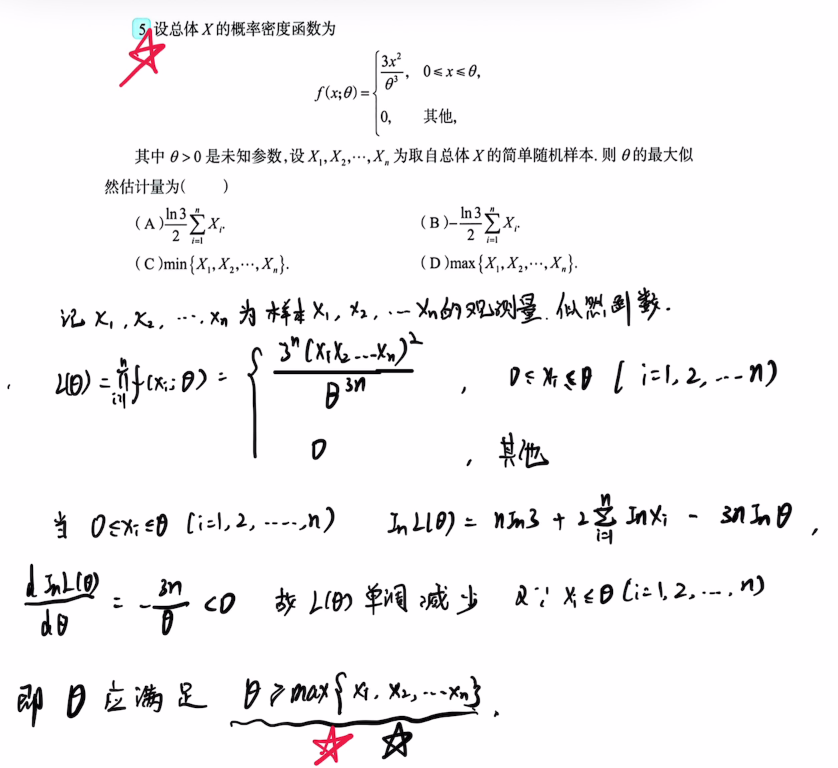 5 设总体 X 的概率密度函数为
f(x;θ)={3x²/θ³, 0≤x≤θ,
0, 其他,
其中 θ>0 是未知参数,设 X₁,X₂,⋯,Xₙ 为取自总体 X 的简单随机样本.则 θ 的最大似
然估计量为( )
(A) ln3/2 ∑ᵢ₌₁ⁿ Xᵢ. (B) -ln3/2 ∑ᵢ₌₁ⁿ Xᵢ.
(C) min{X₁,X₂,⋯,Xₙ}. (D) max{X₁,X₂,⋯,Xₙ}.
记 x₁,x₂,⋯,xₙ 为样本 X₁,X₂,⋯Xₙ的观测量.似然函数.
L(θ)=∏ᵢ₌₁ⁿ f(xᵢ;θ)={3ⁿ(x₁x₂⋯xₙ)²/θ³ⁿ, 0≤xᵢ≤θ (i=1,2,⋯n)
0, 其他
当 0≤xᵢ≤θ (i=1,2,⋯⋯,n) lnL(θ)=nln3+2∑ᵢ₌₁ⁿ lnxᵢ-3nlnθ,
dlnL(θ)/dθ=-3n/θ<0 故 L(θ) 单调减少 又∵ xᵢ≤θ (i=1,2,⋯,n)
即 θ 应满足 θ≥max{x₁,x₂,⋯xₙ}.